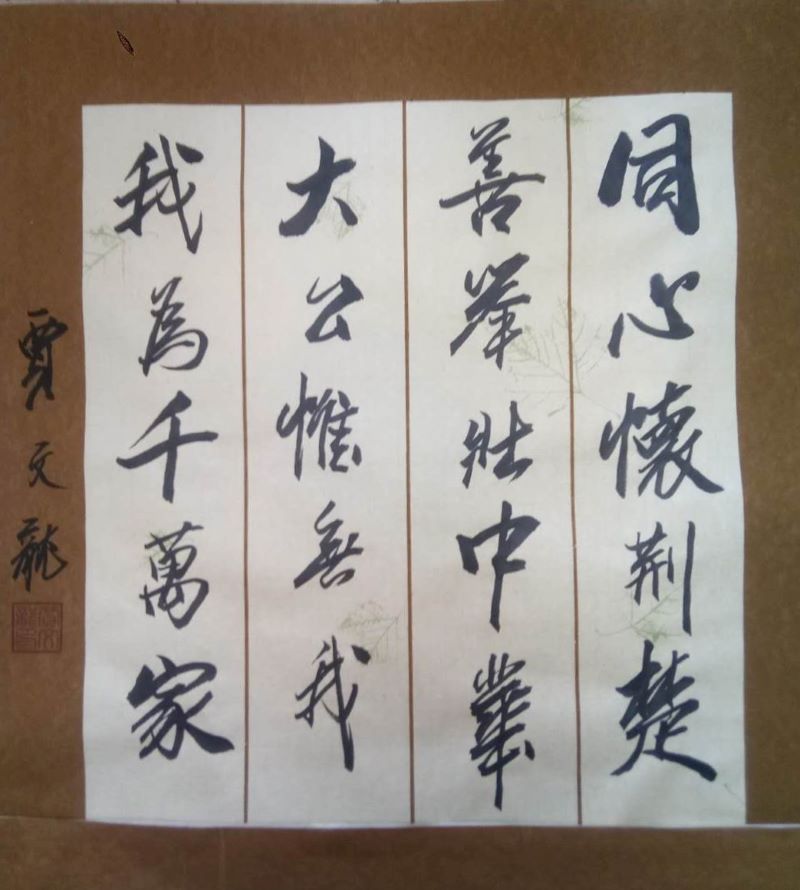 同心懷荆楚
善舉壯中華
大公惟無我
我為千萬家
賈文龍